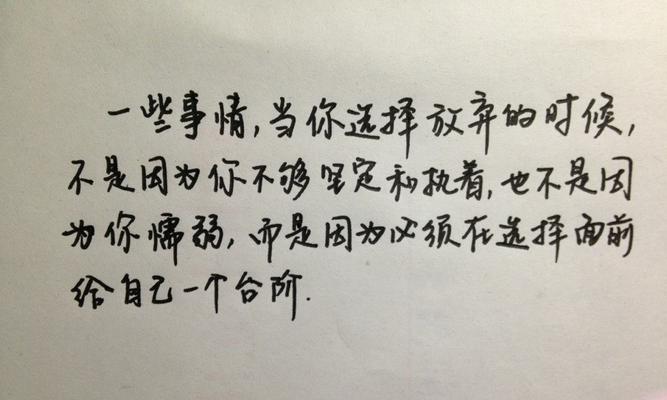 一些事情,当你选择放弃的时候,
不是因为你不够坚定和执着,也不是因
为你懦弱,而是因为必须在选择面前
给自己一个台阶.